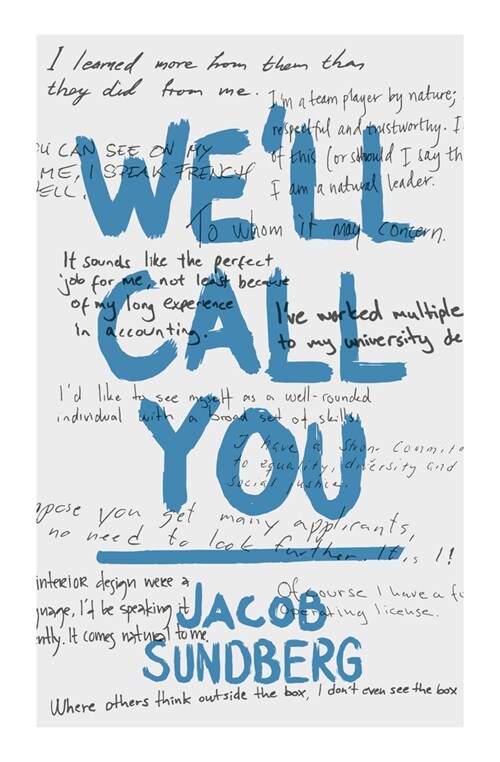 I learned more from them than
they did from me.
I'm a team player by nature;
respectful and trustworthy. I
of this (or should I say th
I am a natural leader.
U CAN SEE ON MY
ME, I SPEAK FRENCH
ELL.
WE'LL
To whom it may concern.
It sounds like the perfect
job for me, not least because
of my long experience
in accounting.
CALL
I've worked multiple
to my university de
I'd like to see myself as a well-rounded
individual with a broad set of skills.
YOU
I have a strong commit
to equality, diversity and
social justice.
pose you get many applicants,
no need to look further. It is I!
interior design were a
guage, I'd be speaking it
ently. It comes natural to me.
Of course I have a fo
operating license.
JACOB
SUNDBERG
Where others think outside the box, I don't even see the box